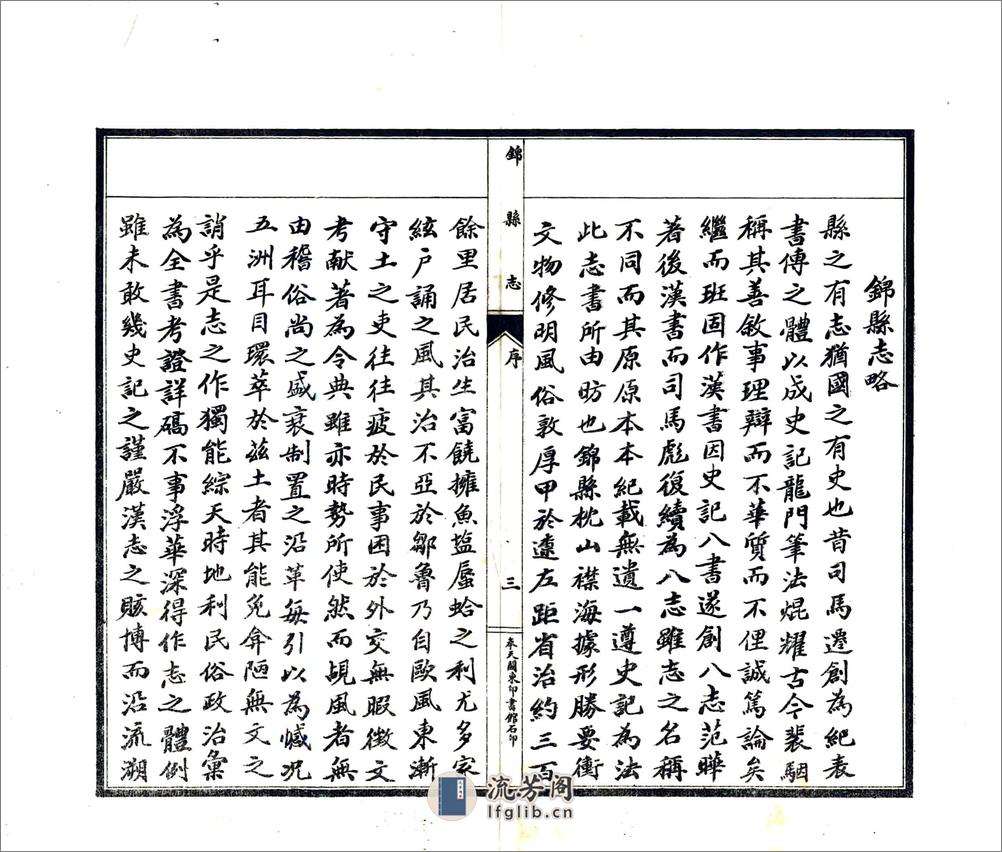 錦縣志略
縣之有志猶國之有史也昔司馬遷創為紀表
書傳之體以成史記龍門筆法焜耀古今裴駰
稱其善敘事理辯而不華質而不俚誠篤論矣
繼而班固作漢書因史記八書遂創八志范曄
著後漢書而司馬彪復續為八志雖志之名稱
不同而其原原本本紀載無遺一遵史記為法
此志書所由昉也錦縣枕山襟海據形勝要衝
文物修明風俗敦厚甲於遼左距省治約三百
錦縣志
序
三
奉天關東印書館石印
餘里居民治生富饒擁魚塩蜃蛤之利尤多家
絃戶誦之風其治不亞於鄒魯乃自歐風東漸
守土之吏往往疲於民事困於外交無暇徵文
考献著為令典雖亦時勢所使然而覘風者無
由稽俗尚之盛衰制置之沿革每引以為憾况
五洲耳目環萃於茲土者其能免弇陋無文之
誚乎是志之作獨能綜天時地利民俗政治彙
為全書考證詳碻不事浮華深得作志之體例
雖未敢幾史記之謹嚴漢志之賅博而沿流溯
流芳阁
lfglib.cn